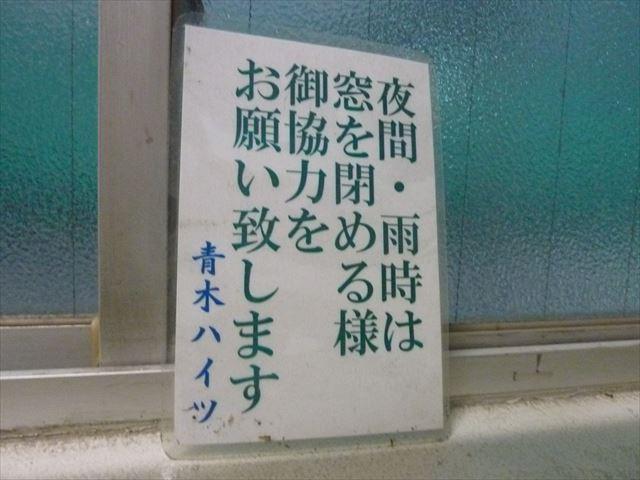 夜間・雨時は
窓を閉める様
御協力を
お願い致します
青木ハイツ